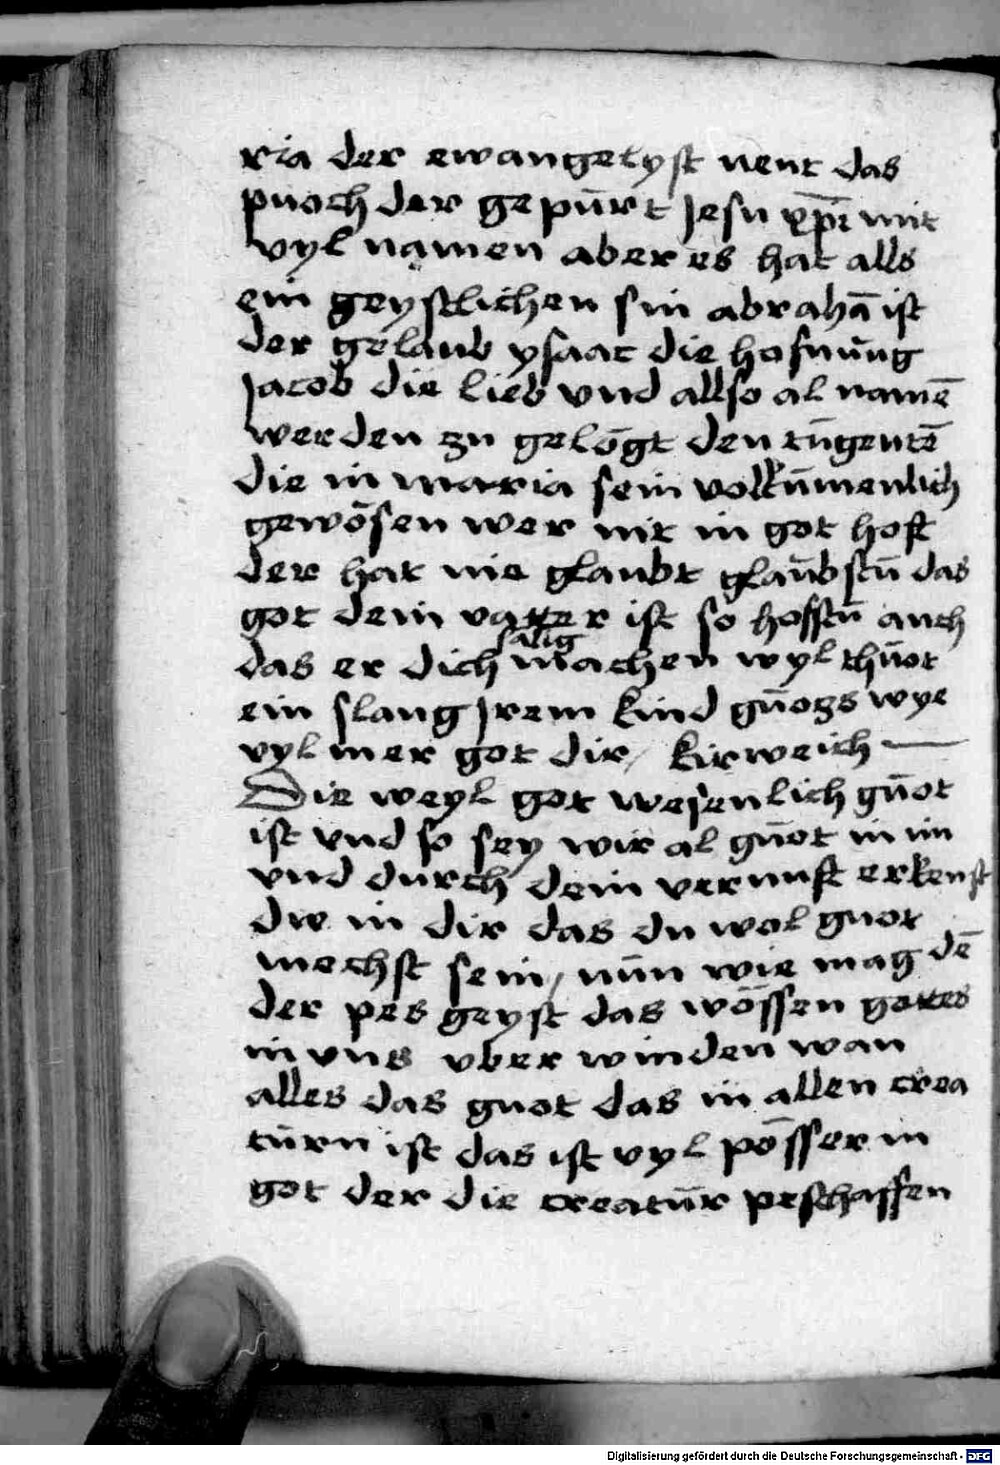 ria der ewangelyst nent das
puoch der gepūrt Jesu xp̄i mit
vyl namen aber es hat alls
ein geystlichen sin abrahā ist
der gelaub ysaac die hofnūng
Jacob die lieb vnd allso al namē
werden zu gelōgt den tūgentē
die in maria sein volkūmenlich
gewōsen wer nit in got hoft
der hat nie glaubt glaūbstū das
got dein vatter ist so hoffstū auch
das er dich sālig machen wyl thūot
ein slang Jrem kind gūozs wye
vyl mer got dir / kirweich —
Die weyl got wesenlich gūot
ist vnd so sey wir al gūot in im
vnd durch dein vernunft erkenst
dw in dir das du wol guot
mechst sein / nūn wie mag dē
der pes geyst das wōssen gottes
in vns vber winden wan
alles das guot das in allen crea
tūrn ist das ist vyl pōsser in
got der die creatūr peschaffen
Digitalisierung gefördert durch die Deutsche Forschungsgemeinschaft - DFG